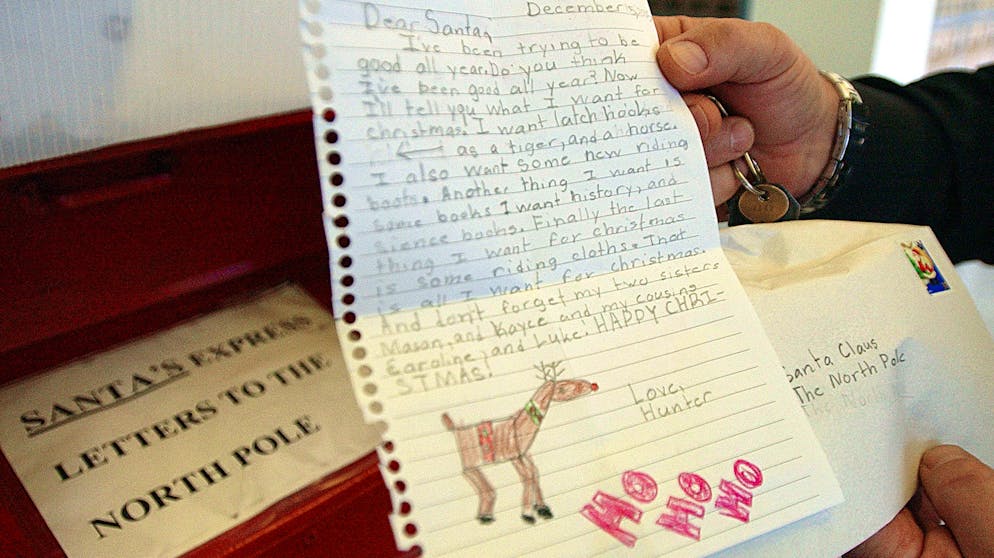 December 15,
Dear Santa,
I've been trying to be
good all year. Do you think
I've been good all year? Now
I'll tell you what I want for
christmas. I want latch hooks
as a tiger, and a horse.
I also want some new riding
boots. Another thing I want is
some books. I want history, and
sience books. Finally the last
thing I want for christmas
is some riding cloths. That
is all I want for christmas.
And don't forget my two sisters
Mason, and Kayce and my cousins
Caroline, and Luke! HAPPY CHRI-
STMAS!
Love,
Hunter
HO HO HO
SANTA'S EXPRESS
LETTERS TO THE
NORTH POLE
Santa Claus
The North Pole